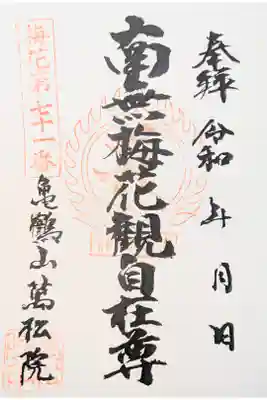 奉拝 令和 年 月 日
南無梅花観自在尊
梅花第七十一番
亀鶴山萬松院